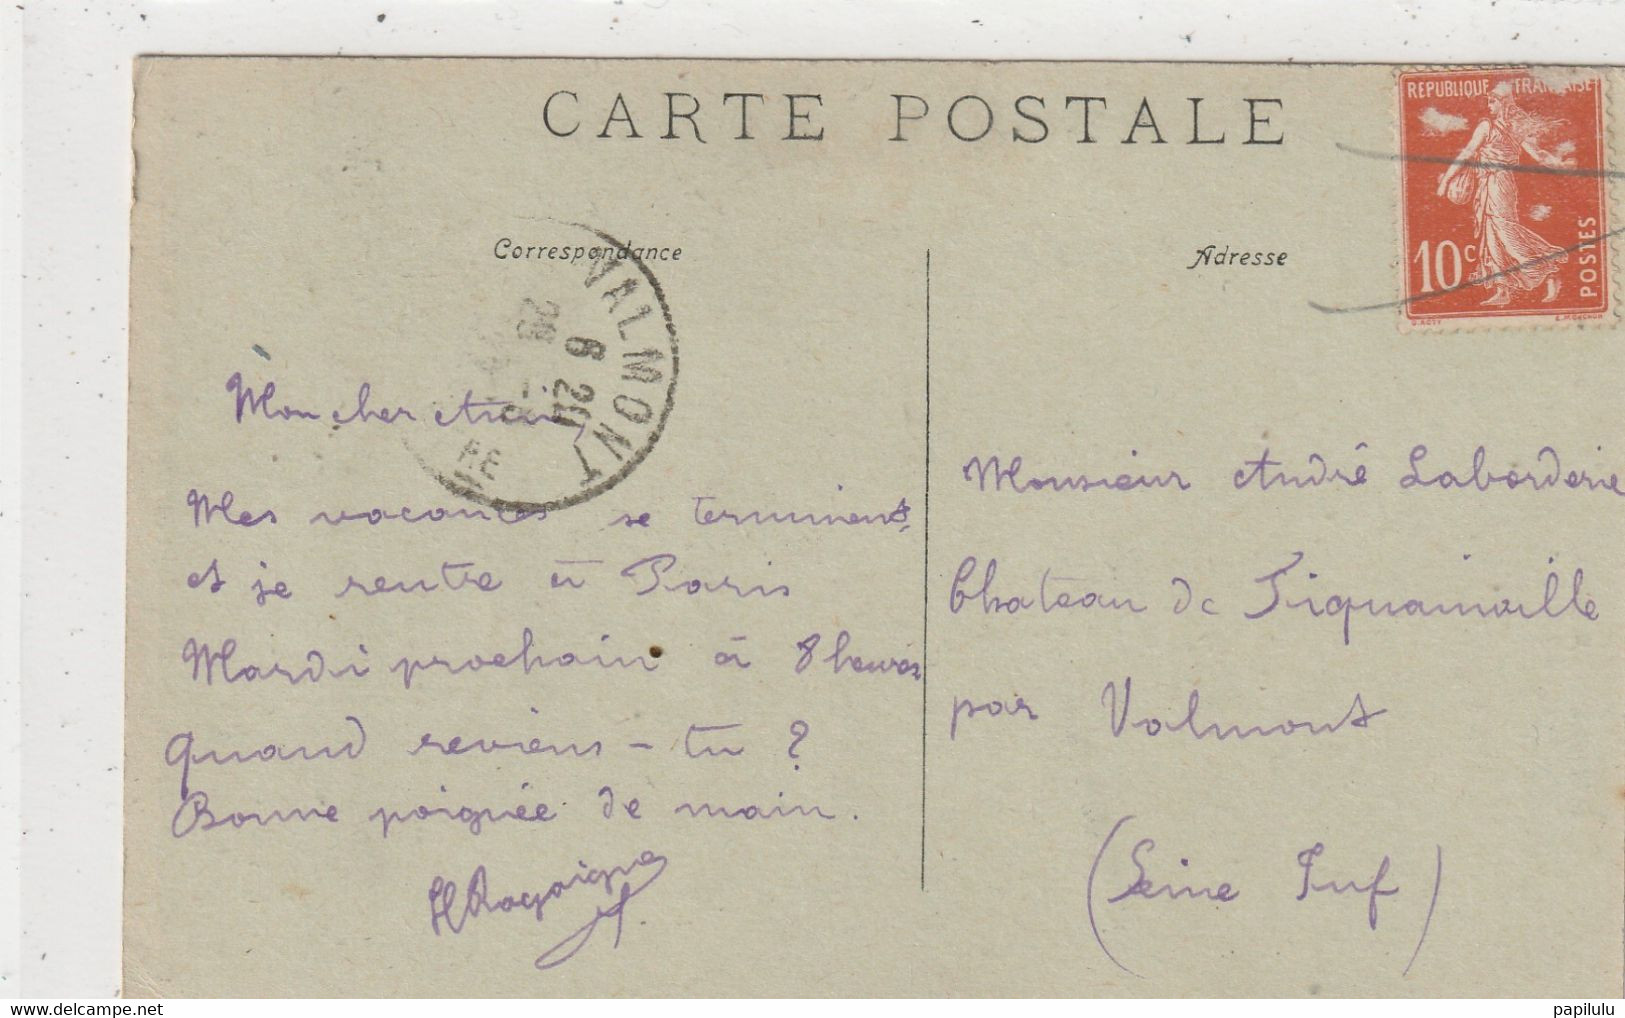 CARTE POSTALE
REPUBLIQUE FRANÇAISE
10c
POSTES
Correspondance
Adresse
VALMONT
6 20
26
RE
Mon cher Ami,
Mes vacances se terminent,
et je rentre à Paris
Mardi prochain à 8 heures
quand reviens-tu ?
Bonne poignée de main.
Monsieur André Laborderie
Chateau de Fiquainville
par Valmont
(Seine Inf)
papilulu